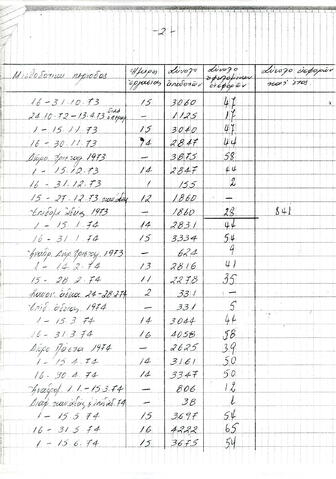 - 2 -
Μισθοδοτική περίοδος Ημέρες εργασίας Σύνολο αποδοχών Σύνολο οφειλομένων εισφορών Σύνολο εισφορών κατ' έτος
16 - 31.10.73 15 3060 47
24.10.72 - 13.4.73 - 1125 17
1 - 15.11.73 15 3040 47
16 - 30.11.73 14 2847 44
Δώρο Χριστουγ. 1973 - 3875 58
1 - 15.12.73 14 2847 44
16 - 31.12.73 1 155 2
15 - 27.12.73 12 1860 -
Επίδομα αδείας 1973 - 1860 28 841
1 - 15.1.74 14 2831 44
16 - 31.1.74 15 3334 54
Δώρ. Χριστουγ. 1973 - 624 9
1 - 14.2.74 13 2816 41
15 - 28.2.74 11 2278 35
άδεια 24 - 28.2.74 2 331 -
Επίδ. αδείας 1974 - 331 5
1 - 15.3.74 14 3044 44
16 - 31.3.74 16 4058 58
Δώρο Πάσχα 1974 - 2625 39
1 - 15.4.74 14 3161 50
16 - 30.4.74 14 3347 50
1.1. - 15.3.74 - 806 12
74 - 38 1
1 - 15.5.74 15 3697 54
16 - 31.5.74 16 4222 65
1 - 15.6.74 15 3675 54